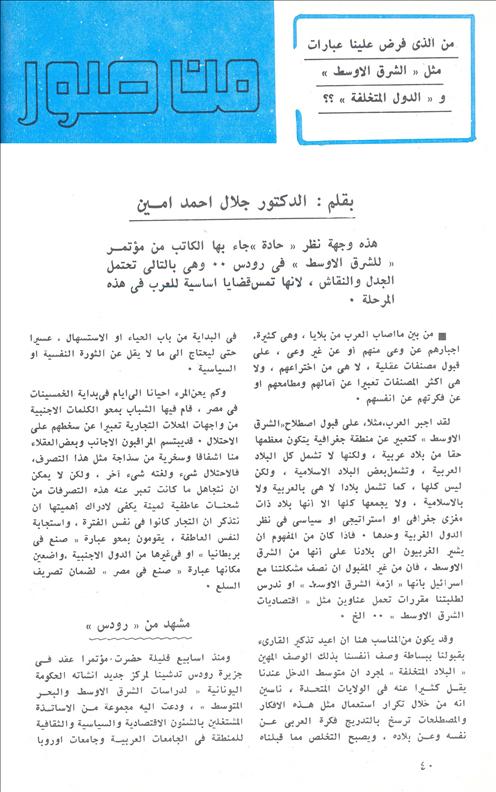 من الذى فرض علينا عبارات
مثل « الشرق الاوسط »
و « الدول المتخلفة » ؟؟
من صور
بقلم : الدكتور جلال احمد امــين
هذه وجهة نظر « حادة »جاء بها الكاتب من مؤتمــر
« للشرق الاوسط » فى رودس ٠٠ وهى بالتالى تحتمل
الجدل والنقاش ، لانها تمس قضايا اساسية للعرب فى هذه
المرحلة ٠
■ من بين مااصاب العرب من بلايا ، وهى كثيرة،
اجبارهم عن وعى منهم أو عن غير وعى ، على
قبول مصنفات عقلية ، لا هى من اختراعهم ، ولا
هى اكثر المصنفات تعبيرا عن آمالهم ومطامعهم او
عن فكرتهم عن انفسهم ٠
لقد اجبر العرب،مثلا، على قبول اصطلاح«الشرق
الاوسط » كتعبير عن منطقة جغرافية يتكون معظمها
حقا من بلاد عربية ، ولكنها لا تشمل كل البلاد
العربية ، وتشمل بعض البلاد الاسلامية ، ولكن
ليس كلها ، كما تشمل بلادا لا هى بالعربية ولا
بالاسلامية ، ولا يجمعها كلها الا أنها بلاد ذات
مغزى جغرافى او استراتيجى او سياسى فى نظر
الدول الغربية وحدها ٠ فاذا كان من المفهوم ان
يشير الغربيون الى بلادنا على أنها من الشرق
الاوسط ، فان من غير المقبول ان نصف مشكلتنا مع
اسرائيل بأنها « ازمة الشرق الاوسط » او ندرس
لطلبتنا مقررات تحمل عناوين مثل « اقتصاديات
الشرق الاوسط » ٠٠ الخ ٠
وقد يكون من المناسب هنا ان اعيد تذكير القارىء
بقبولنا ببساطة وصف أنفسنا بذلك الوصف المهين
« البلاد المتخلفة » لمجرد ان متوسط الدخل عندنا
يقـل كثـيرا عنه فى الولايات المتحدة ، ناسين
انه من خلال تكرار استعمال مثل هـذه الافكار
والمصطلحات ترسخ بالتدريج فكرة العربى عن
نفسه وعـن بلاده ، ويصبح التخلص مما قبلناه
فى البداية من باب الحياء او الاستسهال ، عسيرا
حتى ليحتاج الى ما لا يقل عن الثورة النفسية او
السياسية ٠
وكم يحن المرء احيانا الى ايام فى بداية الخمسينات
فى مصر ، قام فيها الشباب بمحو الكلمات الاجنبية
من واجهات المحلات التجارية تعبيرا عن سخطهم على
الاحتلال ٠ قد يبتسم المراقبون الاجانب وبعض العقلاء
منا اشفاقا وسخرية من سذاجة مثل هذا التصرف،
فالاحتلال شىء ولغته شىء آخر ، ولكن لا يمكن
ان نتجاهل ما كانت تعبر عنه هذه التصرفات من
شحنـات عاطفية ثمينة يكفى لادراك أهميتها ان
نتذكر ان التجار كانوا فى نفس الفترة ، واستجابة
لنفس العاطفة ، يقومون بمحو عبارة « صنع فى
بريطانيا » او فى غيرها من الدول الاجنبية ،واضعين
مكانها عبارة « صنع فى مصر » لضمان تصريف
السلع ٠
مشهد من « رودس »
ومنذ اسابيع قليلة حضرت مؤتمرا عقد فى
جزيرة رودس تدشينا لمركز جديد انشأته الحكومة
اليونانية « لدراسات الشرق الاوسط والبحر
المتوسط » ، ودعت اليه مجموعة مـن الاساتذة
المشتغلين بالشئون الاقتصادية والسياسية والثقافية
للمنطقة فى الجامعات العربيـة وجامعات اوروبا
٤٠